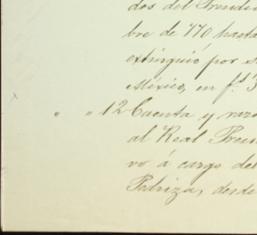 dos del Presidi
bre de 770 hasta
extinguió por s
México, en f.s 3
" " 12 Cuenta y razo
al Real Presi
vo á cargo de
Patriza, desde